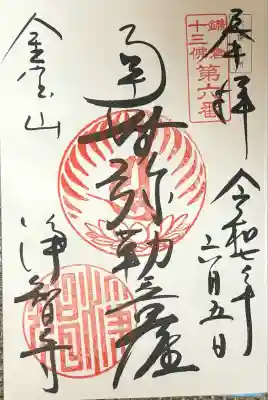 奉拝
令和七年
六月五日
鎌倉
十三佛
第六番
当来導師弥勒菩薩
金宝山
浄智寺